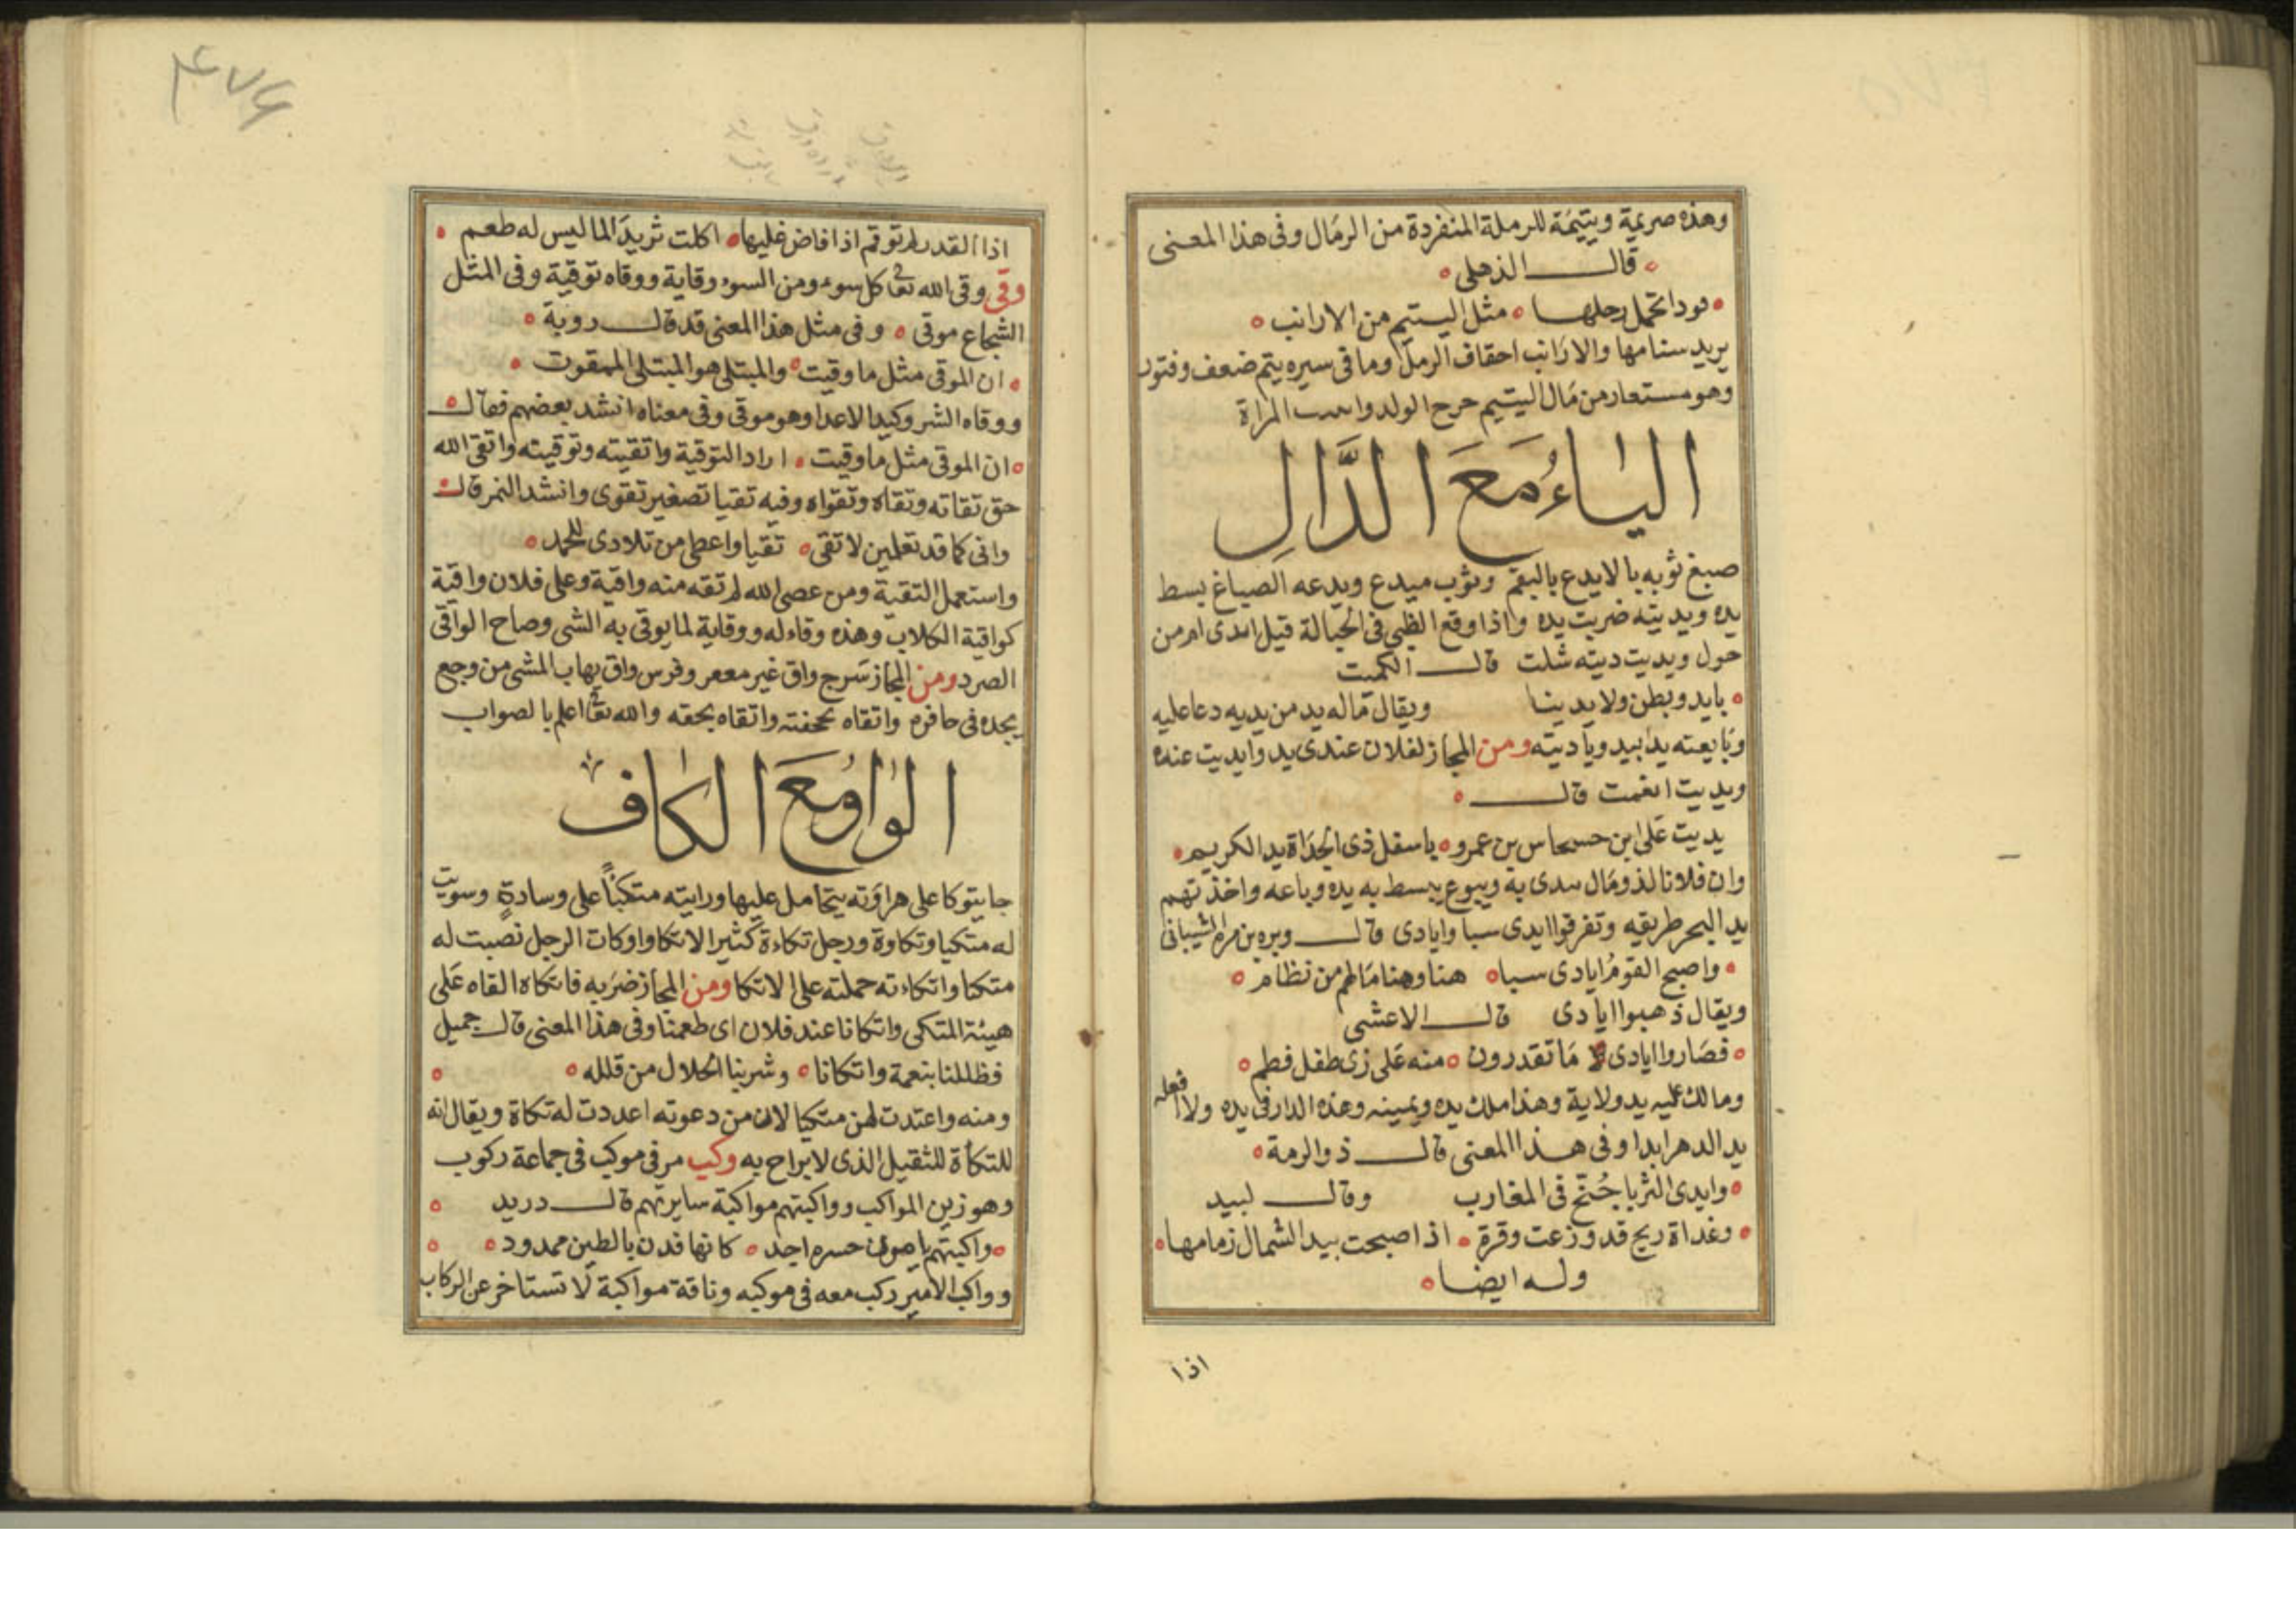 وهذه صريمة ويتيمة للرملة المنفردة من الرمال وفى هذا المعنى
قال الذهلى
قودا تحمل رحلها مثل اليتيم من الارانب
يريد سنامها والارانب احقاف الرمل وما فى سيره يتم ضعف وفتور
وهو مستعار من مال اليتيم الولد المراة
الياء مع الدال
صبغ ثوبه بالايدع بالبقم وثوب ميدع ويدعه الصباغ بسط
يده ويديته ضربت يده واذا وقع الظبى فى الحبالة قيل ايدى ام من
حول ويديت ديته شلت قال الكميت
بايد وبطن ولا يدينا ويقال ماله يد من يديه دعا عليه
وبايعته يدا بيد وياديته ومن المجاز لفلان عندى يد وايديت عنده
ويديت انعمت قال
يديت على ابن حسحاس بن عمرو باسفل ذى الجذاة يد الكريم
وان فلانا لذو مال يدى به ويبوع يبسط به يده وباعه واخذ بهم
يد البحر طريقه وتفرقوا ايدى سبا وايادى قال وبره بن مره الشيبانى
واصبح القوم ايادى سبا هنا وهنا مالهم من نظام
ويقال ذهبوا ايادى قال الاعشى
فصاروا ايادى ما تقدرون منه على زى طفل فطم
ومالك عليه يد ولاية وهذا ملك يده ويمينه وهذه الدار فى يده ولا افعله
يد الدهر ابدا وفى هذا المعنى قال ذو الرمة
وايدى الثريا جنح فى المغارب وقال لبيد
وغداة ريح قد وزعت وقرة اذا اصبحت بيد الشمال زمامها
وله ايضا
اذا
٤٧٦
اذا القدر لم توقم اذا فاض غليها اكلت ثريدا لما ليس له طعم
وقى وقى الله تعا كل سوء ومن السوء وقاية ووقاه توقية وفى المثل
الشجاع موقى وفى مثل هذا المعنى قد قال روبة
ان الموقى مثل ما وقيت والمبتلى هو المبتلى الممقوت
ووقاه الشر وكيد الاعدا وهو موقى وفى معناه انشد بعضهم فقال
ان الموقى مثل ما وقيت اراد التوقية واتقيته وتوقيته واتقى الله
حق تقاته وتقاه وتقواه وفيه تقيا تصغير تقوى وانشد النمر قال
وانى كما قد تعلمين لا تقى تقيا واعطى من تلادى للحمد
واستعمل التقية ومن عصى الله لم تقه منه واقية وعلى فلان واقية
كواقية الكلاب وهذه وقاء له ووقاية لما يوقى به الشى وصاح الواقى
الصرد ومن المجاز سرج واق غير معقر وفرس واق يهاب المشى من وجع
يجده فى حافره واتقاه بحجفته واتقاه بحقه والله تعا اعلم بالصواب
الواو مع الكاف
جا يتوكا على هراوته يتحامل عليها ورايته متكئا على وسادة وسويت
له متكيا وتكاوة ورجل تكاءة كثير الاتكا واوكات الرجل نصبت له
متكا واتكاءته حملته على الاتكا ومن المجاز ضربه فاتكاه القاه على
هيئة المتكى واتكانا عند فلان اى طعمنا وفى هذا المعنى قال جميل
فظللنا بنعمة واتكانا وشربنا الحلال من قلله
ومنه واعتدت لهن متكيا لان من دعوته اعددت له تكاة ويقال انه
للتكاة للثقيل الذى لا يراح به وكب مر فى موكب فى جماعة ركوب
وهو زين المواكب وواكبتهم مواكبة سايرتهم قال دريد
واكبتهم كانها فدن بالطين ممدود
وواكب الامير ركب معه فى موكبه وناقة مواكبة لا تستاخر عن الركاب